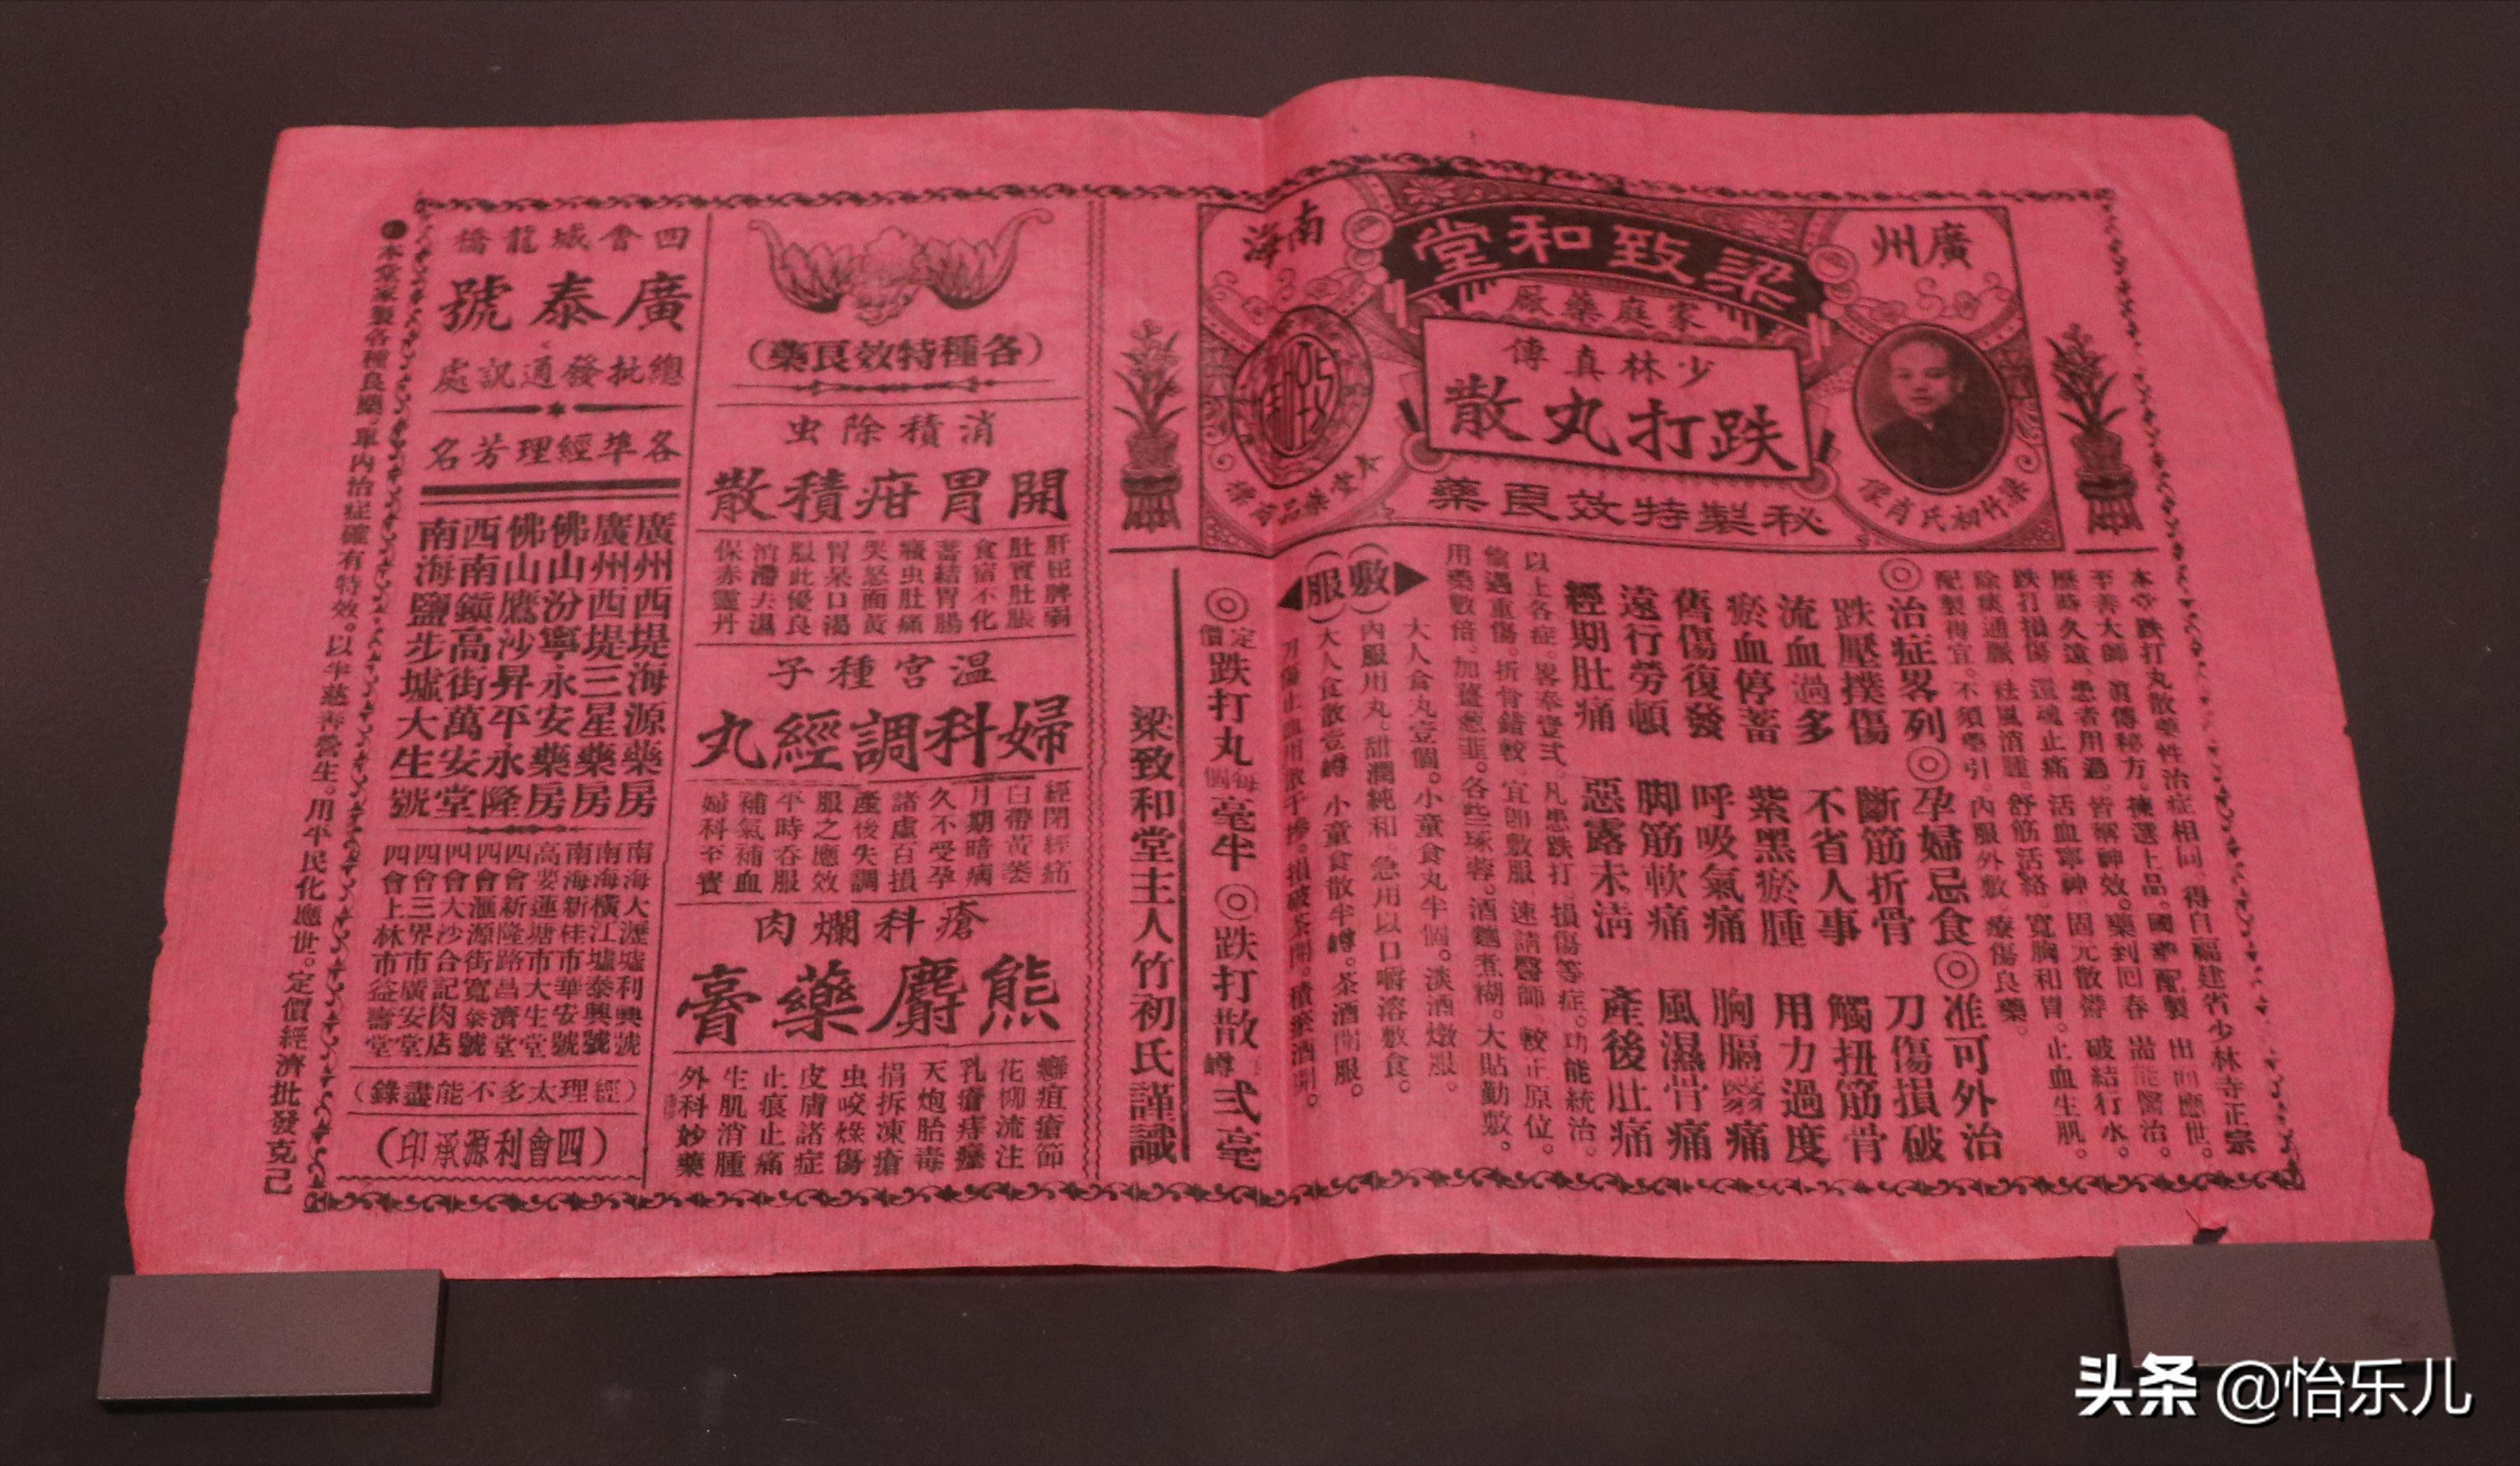 廣州
南海
梁致和堂
家庭藥廠
少林真傳
跌打丸散
秘製特效良藥
梁竹初氏肖像
本堂藥品商標
本堂跌打丸散藥性治症相同。得自福建省少林寺正宗
至善大師。真傳秘方。揀選上品。國藥配製。出而應世。
歷時久遠。患者用過。皆稱神效。藥到回春。
跌打損傷。還魂止痛。活血寧神。固元散滯。破結行水。
除痰通脈。祛風消腫。舒筋活絡。寬胸和胃。止血生肌。
配製得宜。不須藥引。內服外敷。療傷良藥。
◎治症畧列◎孕婦忌食◎准可外治
跌壓撲傷 斷筋折骨 刀傷損破
流血過多 不省人事 觸扭筋骨
瘀血停蓄 紫黑瘀腫 用力過度
舊傷復發 呼吸氣痛 胸膈翳痛
遠行勞頓 脚筋軟痛 風濕骨痛
經期肚痛 惡露未清 產後肚痛
以上各症。畧奉壹弍。凡患跌打。損傷等症。功能統治。
倘遇重傷。折骨錯骹。宜即敷服。速請醫師。較正原位。
用藥數倍。加薑葱韮。各些琢蓉。酒麵煮糊。大貼勤敷。
敷服
大人食丸壹個。小童食丸半個。淡酒燉服。
內服用丸。甜潤純和。急用以口嚼溶敷食。
大人食散壹罇。小童食散半罇。茶酒開服。
刀傷止血用散干摻。損破茶開。積瘀酒開。
◎定價跌打丸每個毫半◎跌打散罇弍毫
梁致和堂主人竹初氏謹識
(各種特效良藥)
消積除虫
開胃疳積散
肝旺脾弱
肚實肚脹
食宿不化
蓄結胃腸
癪虫肚痛
哭怒面黃
胃呆口渴
服此優良
消滯去濕
保赤靈丹
溫宮種子
婦科調經丸
經閉經痛
白帶黃萎
月期暗病
久不受孕
諸虛百損
產後失調
服之應效
平時吞服
補氣補血
婦科至寶
瘡科爛肉
熊麝藥膏
癰疽瘡節
花柳流注
乳瘡痔瘻
天炮胎毒
損拆凍瘡
虫咬燥傷
皮膚諸症
止痕止痛
生肌消腫
外科妙藥
四會城龍橋
廣泰號
總批發通訊處
各埠經理芳名
廣州西堤海源藥房
廣州西堤三星藥房
佛山汾寧永安藥房
佛山鷹沙昇平永隆
西南鎮高街萬安堂
南海鹽步墟大生號
南海大瀝墟利興號
南海橫江墟泰興號
南海新桂市華安號
高要蓮塘市大生堂
四會新隆路昌濟堂
四會滙源街寬泰號
四會大沙合記肉店
四會三界市廣安堂
四會上林市益壽堂
(經理太多不能盡錄)
(四會利源承印)
本堂家製各種良藥。單內治症確有特效。以半慈善營生。用平民化應世。定價經濟批發克己
头条 @怡乐儿